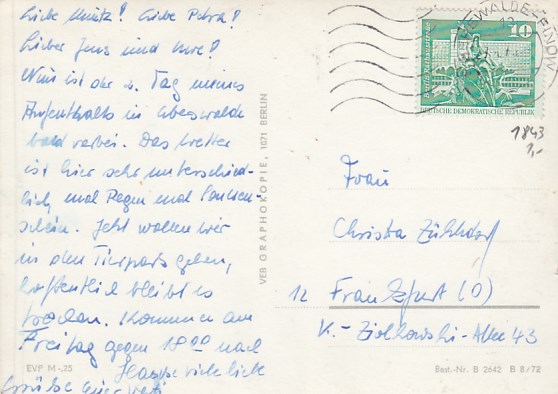 Liebe Mutz! Liebe Petra!
Lieber Jens und Uwe!
Nun ist der 2. Tag meines
Aufenthalts in Eberswalde
bald vorbei. Das Wetter
ist hier sehr unterschied-
lich, mal Regen mal Sonnen-
schein. Jetzt wollen wir
in den Tierpark gehen,
hoffentlich bleibt es
trocken. Kommen am
Freitag gegen 18 00 nach
Hause
EVP M -,25
VEB GRAPHOKOPIE, 1071 BERLIN
EBERSWALDE-FINOW
10
DEUTSCHE DEMOKRATISCHE REPUBLIK
1843
1,-
Frau
Christa
12 Frankfurt (O)
K.-Ziolkowski-Allee 43
Best.-Nr. B 2642 B 8/72